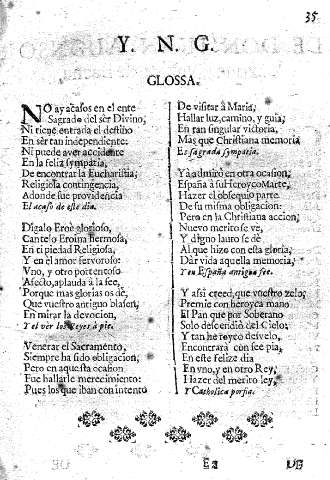 35
Y. N. G.
GLOSSA.
NO ay acasos en el ente
Sagrado del sèr Divino,
Ni tiene entrada el destino
En sèr tan independiente:
Ni puede aver accidente
En la feliz sympatia,
De encontrar la Eucharistia;
Religiosa contingencia,
Adonde fue providencia
El acaso de este dia.
Digalo Eroe glorioso,
Cantelo Eroina hermosa,
En ti piedad Religiosa,
Y en èl amor fervoroso:
Vno, y otro portentoso
Afecto, aplauda à la fee,
Porque mas glorias os dè,
Que vuestro antiguo blason,
En mirar la devocion,
Y el vèr los Reyes à pie.
Venerar el Sacramento,
Siempre ha sido obligacion,
Pero en aquesta ocasion
Fue hallarle merecimiento:
Pues los que iban con intento
De visitar à Maria,
Hallar luz, camino, y guia,
En tan singular victoria,
Mas que Christiana memoria
Es sagrada sympatia.
Yà admirò en otra ocasion,
España à su Heroyco Marte,
Hazer el obsequio parte
De su misma obligacion:
Pero en la Christiana accion,
Nuevo merito se vè,
Y digno lauro se dè
Al que hizo con esta gloria,
Dàr vida aquella memoria,
Y en España antigua fee.
Y assi creed, que vuestro zelo,
Premie con heroyca mano
El Pan que por Soberano
Solo descendiò del Cielo:
Y tan he royco desvelo,
Enconerarà con see pia,
En este felize dia
En vno, y en otro Rey,
Hazer del merito ley,
Y Catholica porfia.
E2